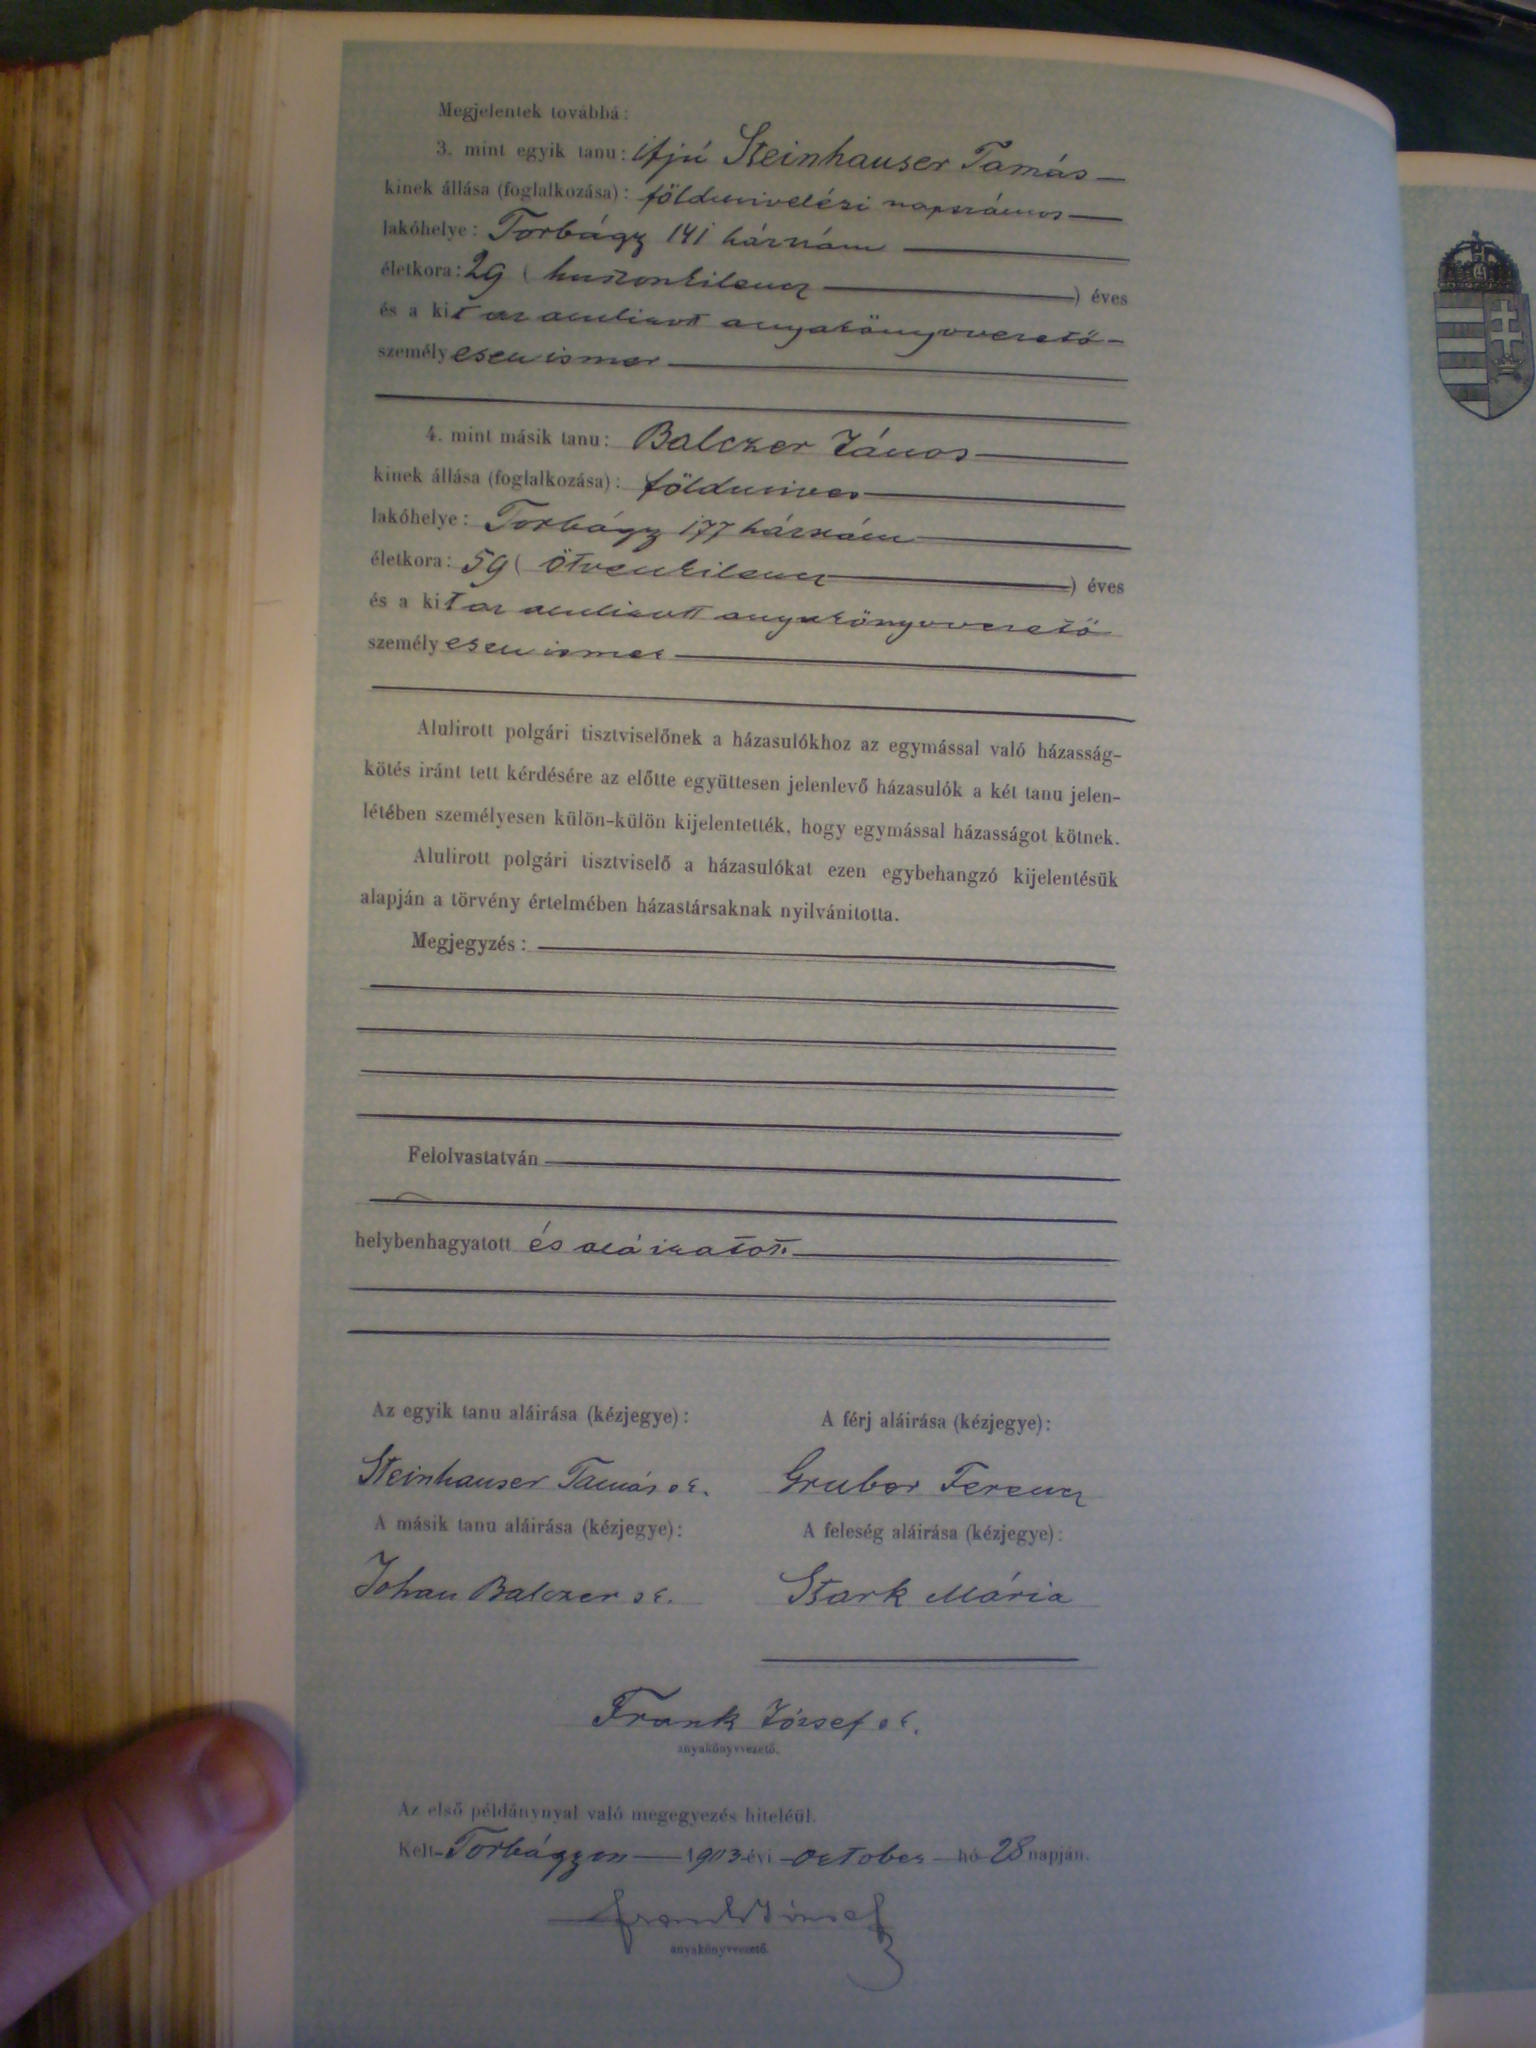 Megjelentek továbbá:
3. mint egyik tanu: ifjú Steinhauser Tamás
kinek állása (foglalkozása): földmivelési napszámos
lakóhelye: Torbágy 141 házszám
életkora: 29 (huszonkilencz) éves
és a kit az alulirott anyakönyvvezető
személyesen ismer
4. mint másik tanu: Balczer János
kinek állása (foglalkozása): földmives
lakóhelye: Torbágy 177 házszám
életkora: 59 (ötvenkilencz) éves
és a kit az alulirott anyakönyvvezető
személyesen ismer
Alulirott polgári tisztviselőnek a házasulókhoz az egymással való házasság-
kötés iránt tett kérdésére az előtte együttesen jelenlevő házasulók a két tanu jelen-
létében személyesen külön-külön kijelentették, hogy egymással házasságot kötnek.
Alulirott polgári tisztviselő a házasulókat ezen egybehangzó kijelentésük
alapján a törvény értelmében házastársaknak nyilvánitotta.
Megjegyzés:
Felolvastatván
helybenhagyatott és aláiratott.
Az egyik tanu aláirása (kézjegye): A férj aláirása (kézjegye):
Steinhauser Tamás s k. Gruber Ferencz
A másik tanu aláirása (kézjegye): A feleség aláirása (kézjegye):
Johan Balczer s k. Stark Mária
Frank József s k.
anyakönyvvezető.
Az első példánynyal való megegyezés hiteléül.
Kelt Torbágyon 1913 évi october hó 28 napján.
Frank József
anyakönyvvezető.